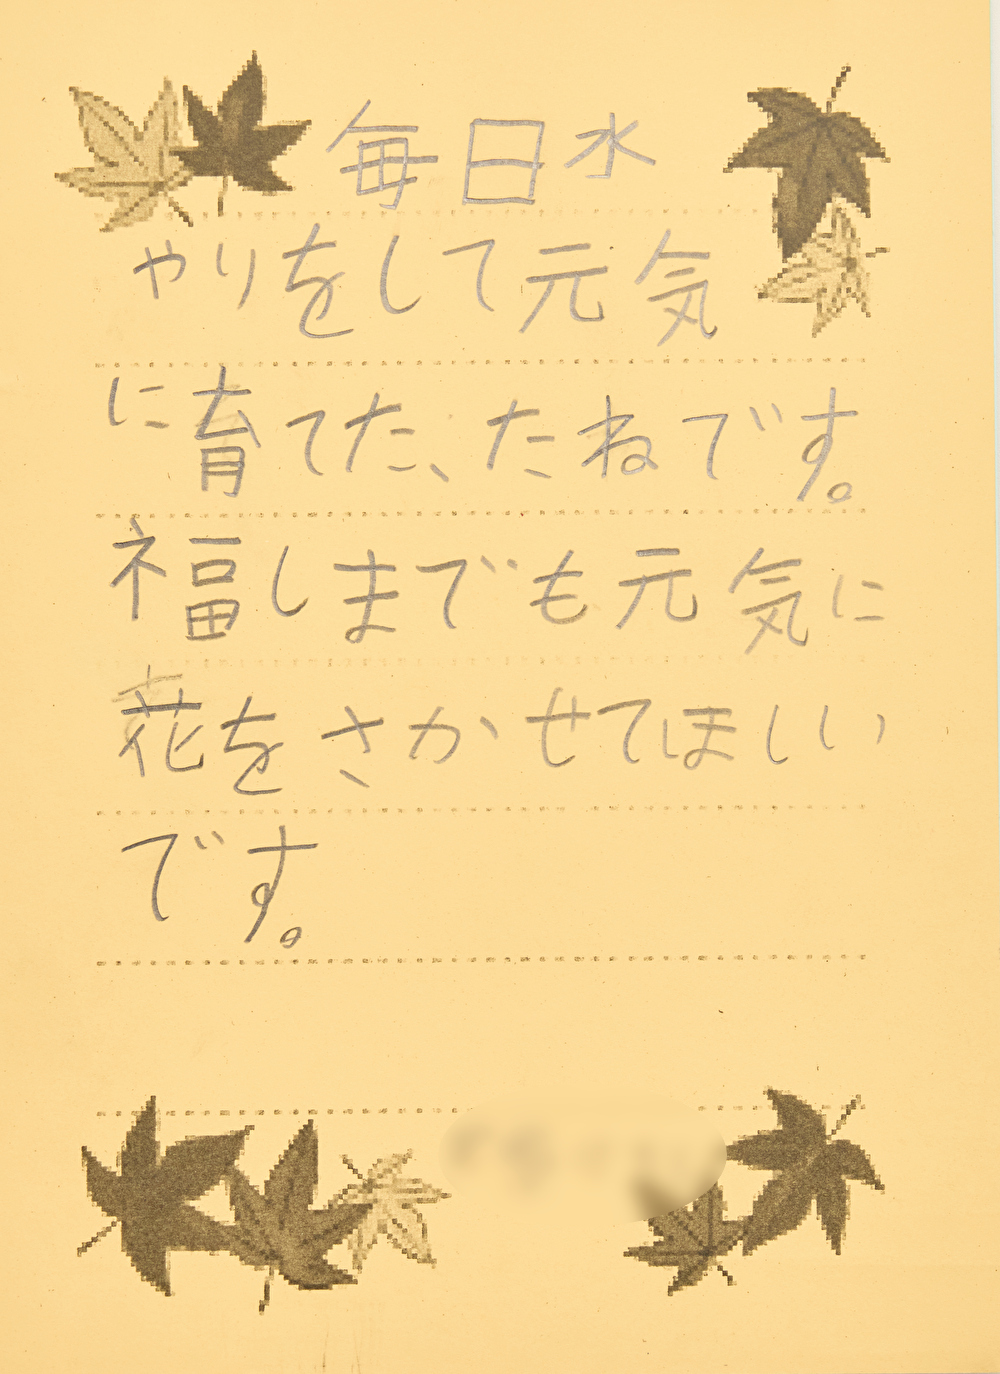 毎日水
やりをして元気
に育てた、たねです。
福しまでも元気に
花をさかせてほしい
です。